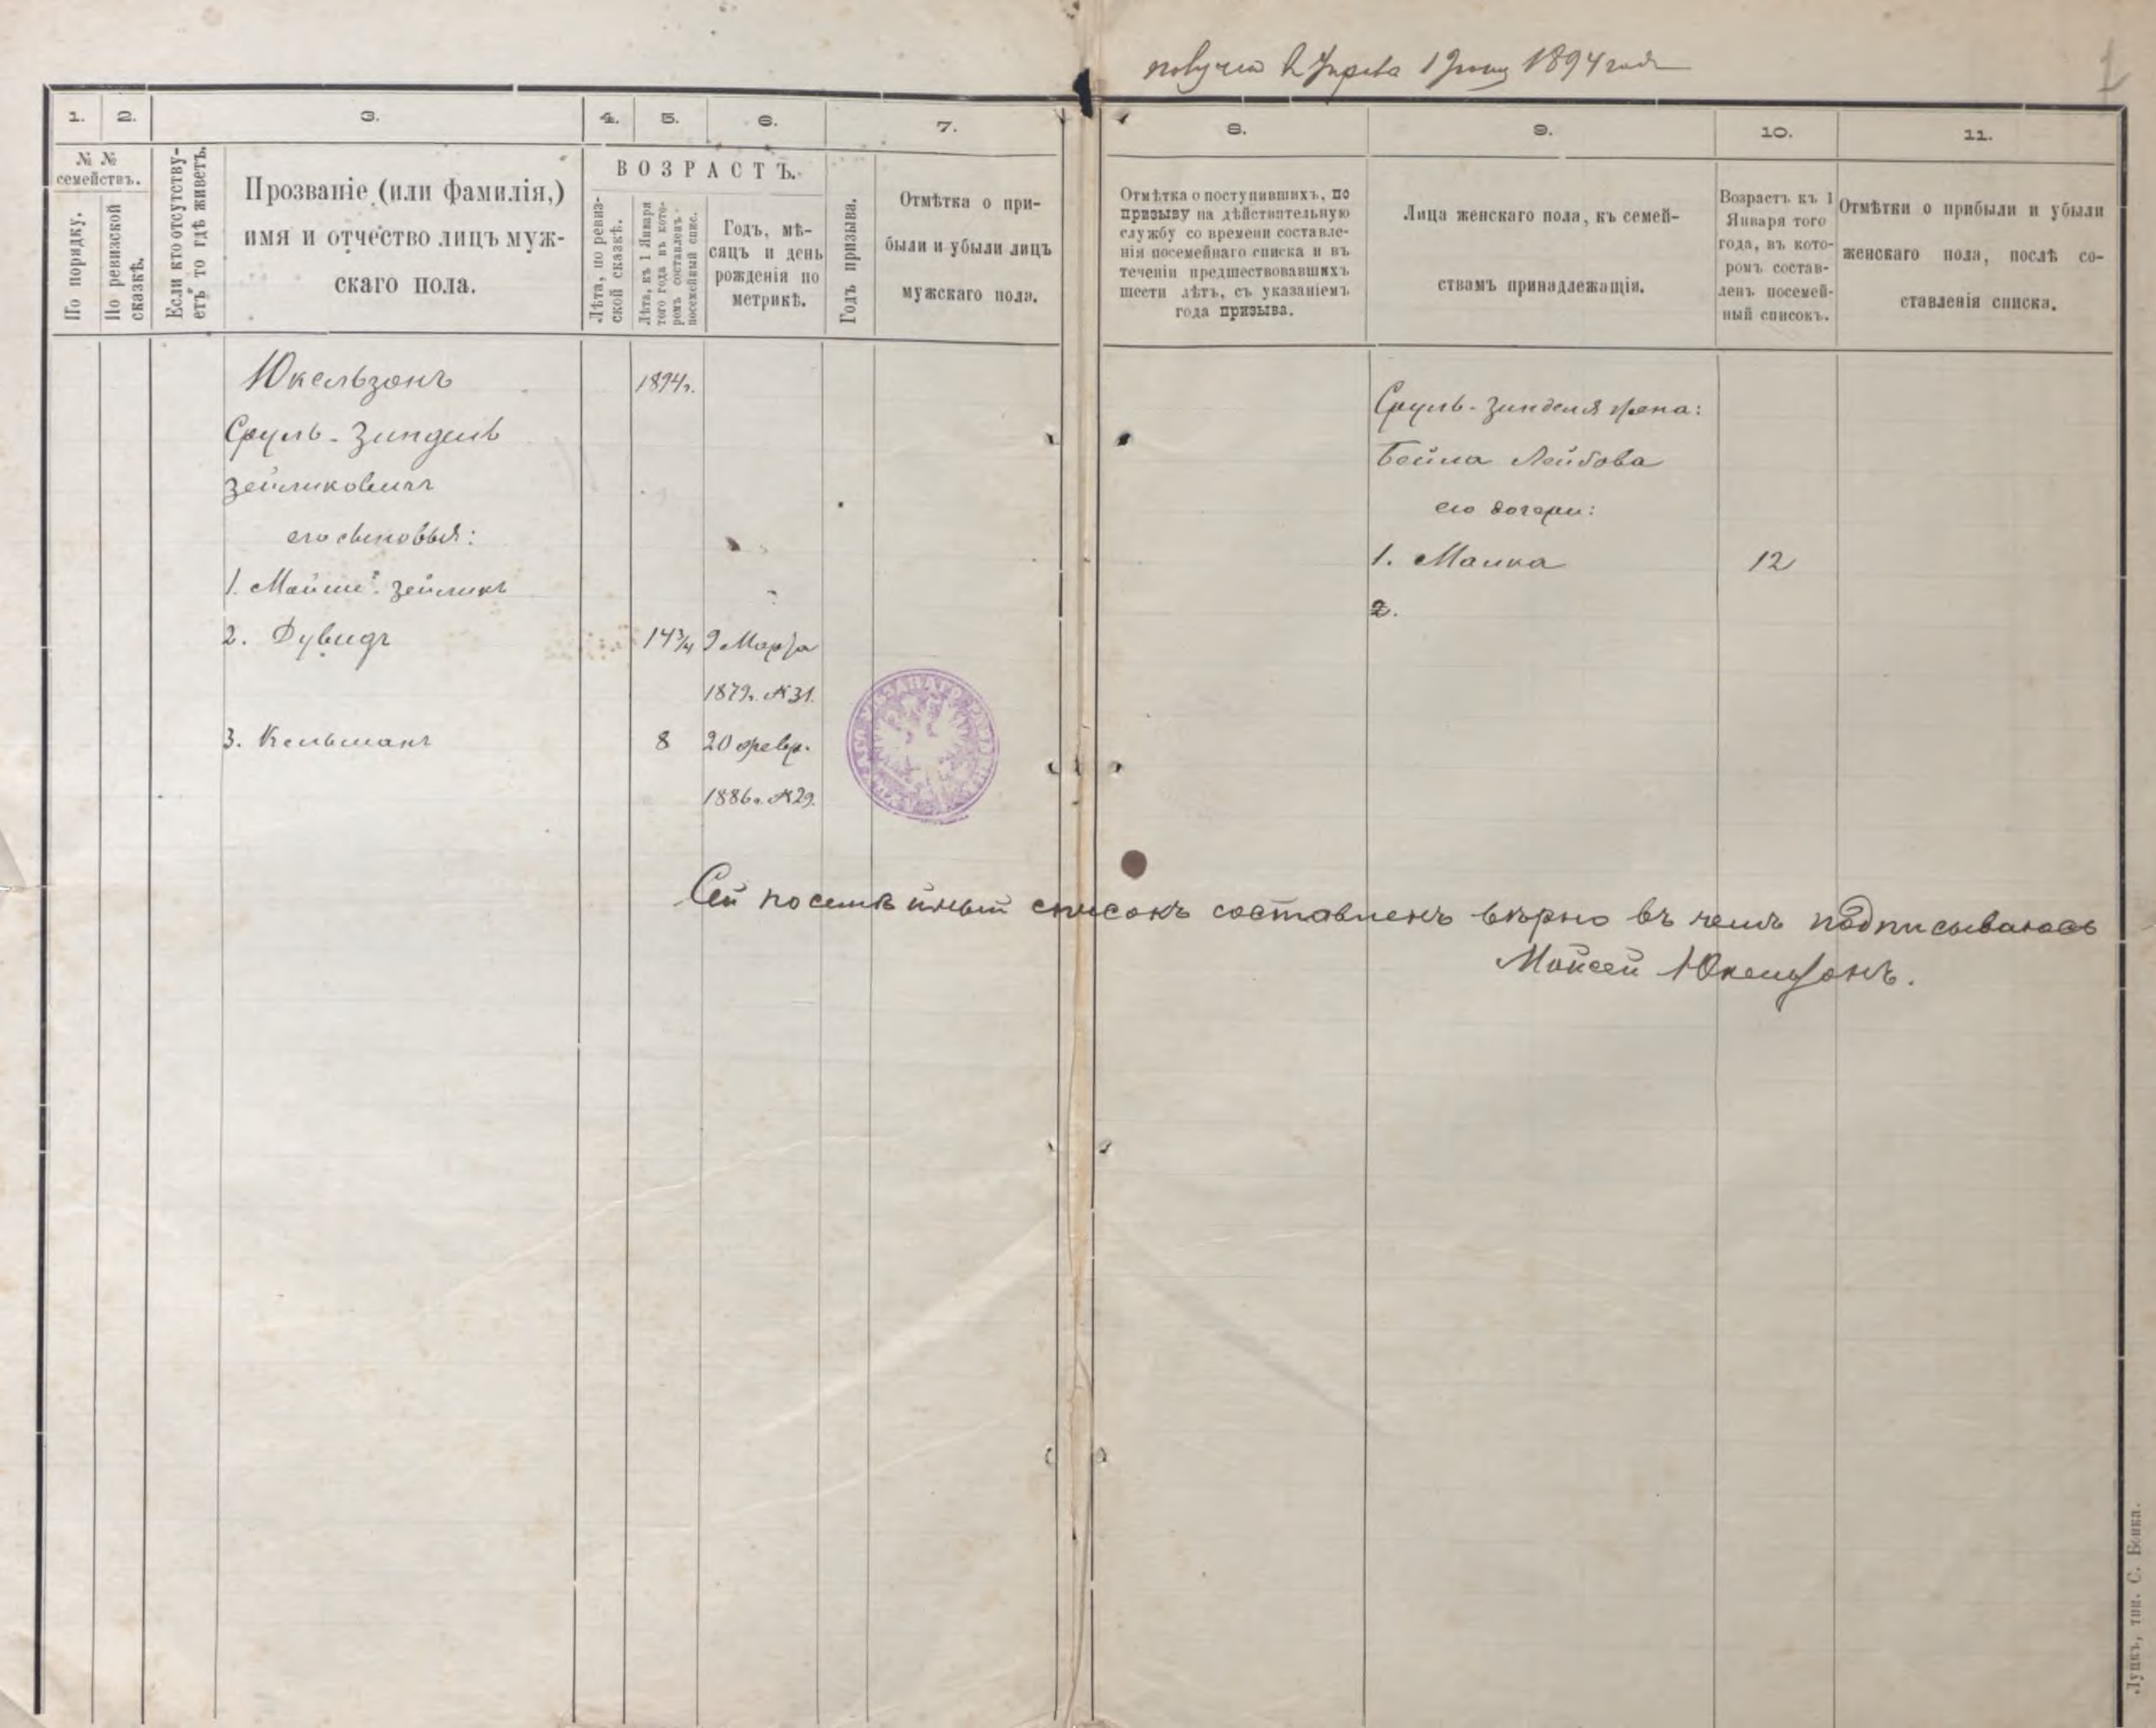 1894 года
1. 2. 3. 4. 5. 6. 7. 8. 9. 10. 11.
№ №
семействъ.
По порядку.
По ревизской
сказкѣ.
Если кто отсутству-
етъ то гдѣ живетъ.
Прозваніе (или фамилія,)
имя и отчество лицъ муж-
скаго пола.
ВОЗРАСТЪ.
Лѣта, по ревиз-
ской сказкѣ.
Лѣта, къ 1 Января
того года въ кото-
ромъ составленъ
посемейный спис.
Годъ, мѣ-
сяцъ и день
рожденія по
метрикѣ.
Годъ призыва.
Отмѣтка о при-
были и убыли лицъ
мужскаго пола.
Отмѣтка о поступившихъ, по
призыву на дѣйствительную
службу со времени составле-
нія посемейнаго списка и въ
теченіи предшествовавшихъ
шести лѣтъ, съ указаніемъ
года призыва.
Лица женскаго пола, къ семей-
ствамъ принадлежащія.
Возрастъ къ 1
Января того
года, въ кото-
ромъ состав-
ленъ посемей-
ный списокъ.
Отмѣтки о прибыли и убыли
женскаго пола, послѣ со-
ставленія списка.
Юкельзонъ 1894г.
Сруль-Зиндель
Зейликовичъ
его сыновья:
1. Мойше-Зейликъ
2. Дувидъ 14 3/4 9 Марта
1879г. №31.
3. Кельманъ 8 20 февр.
1886г. №29.
Сруль-Зинделя жена:
Бейла Лейбова
его дочери:
1. Малка 12
2.
Сей посемѣйный списокъ составленъ вѣрно въ чемъ подписываюсь
Мойсей Юкельзонъ.
Луцкъ, тип. С. Бонка.